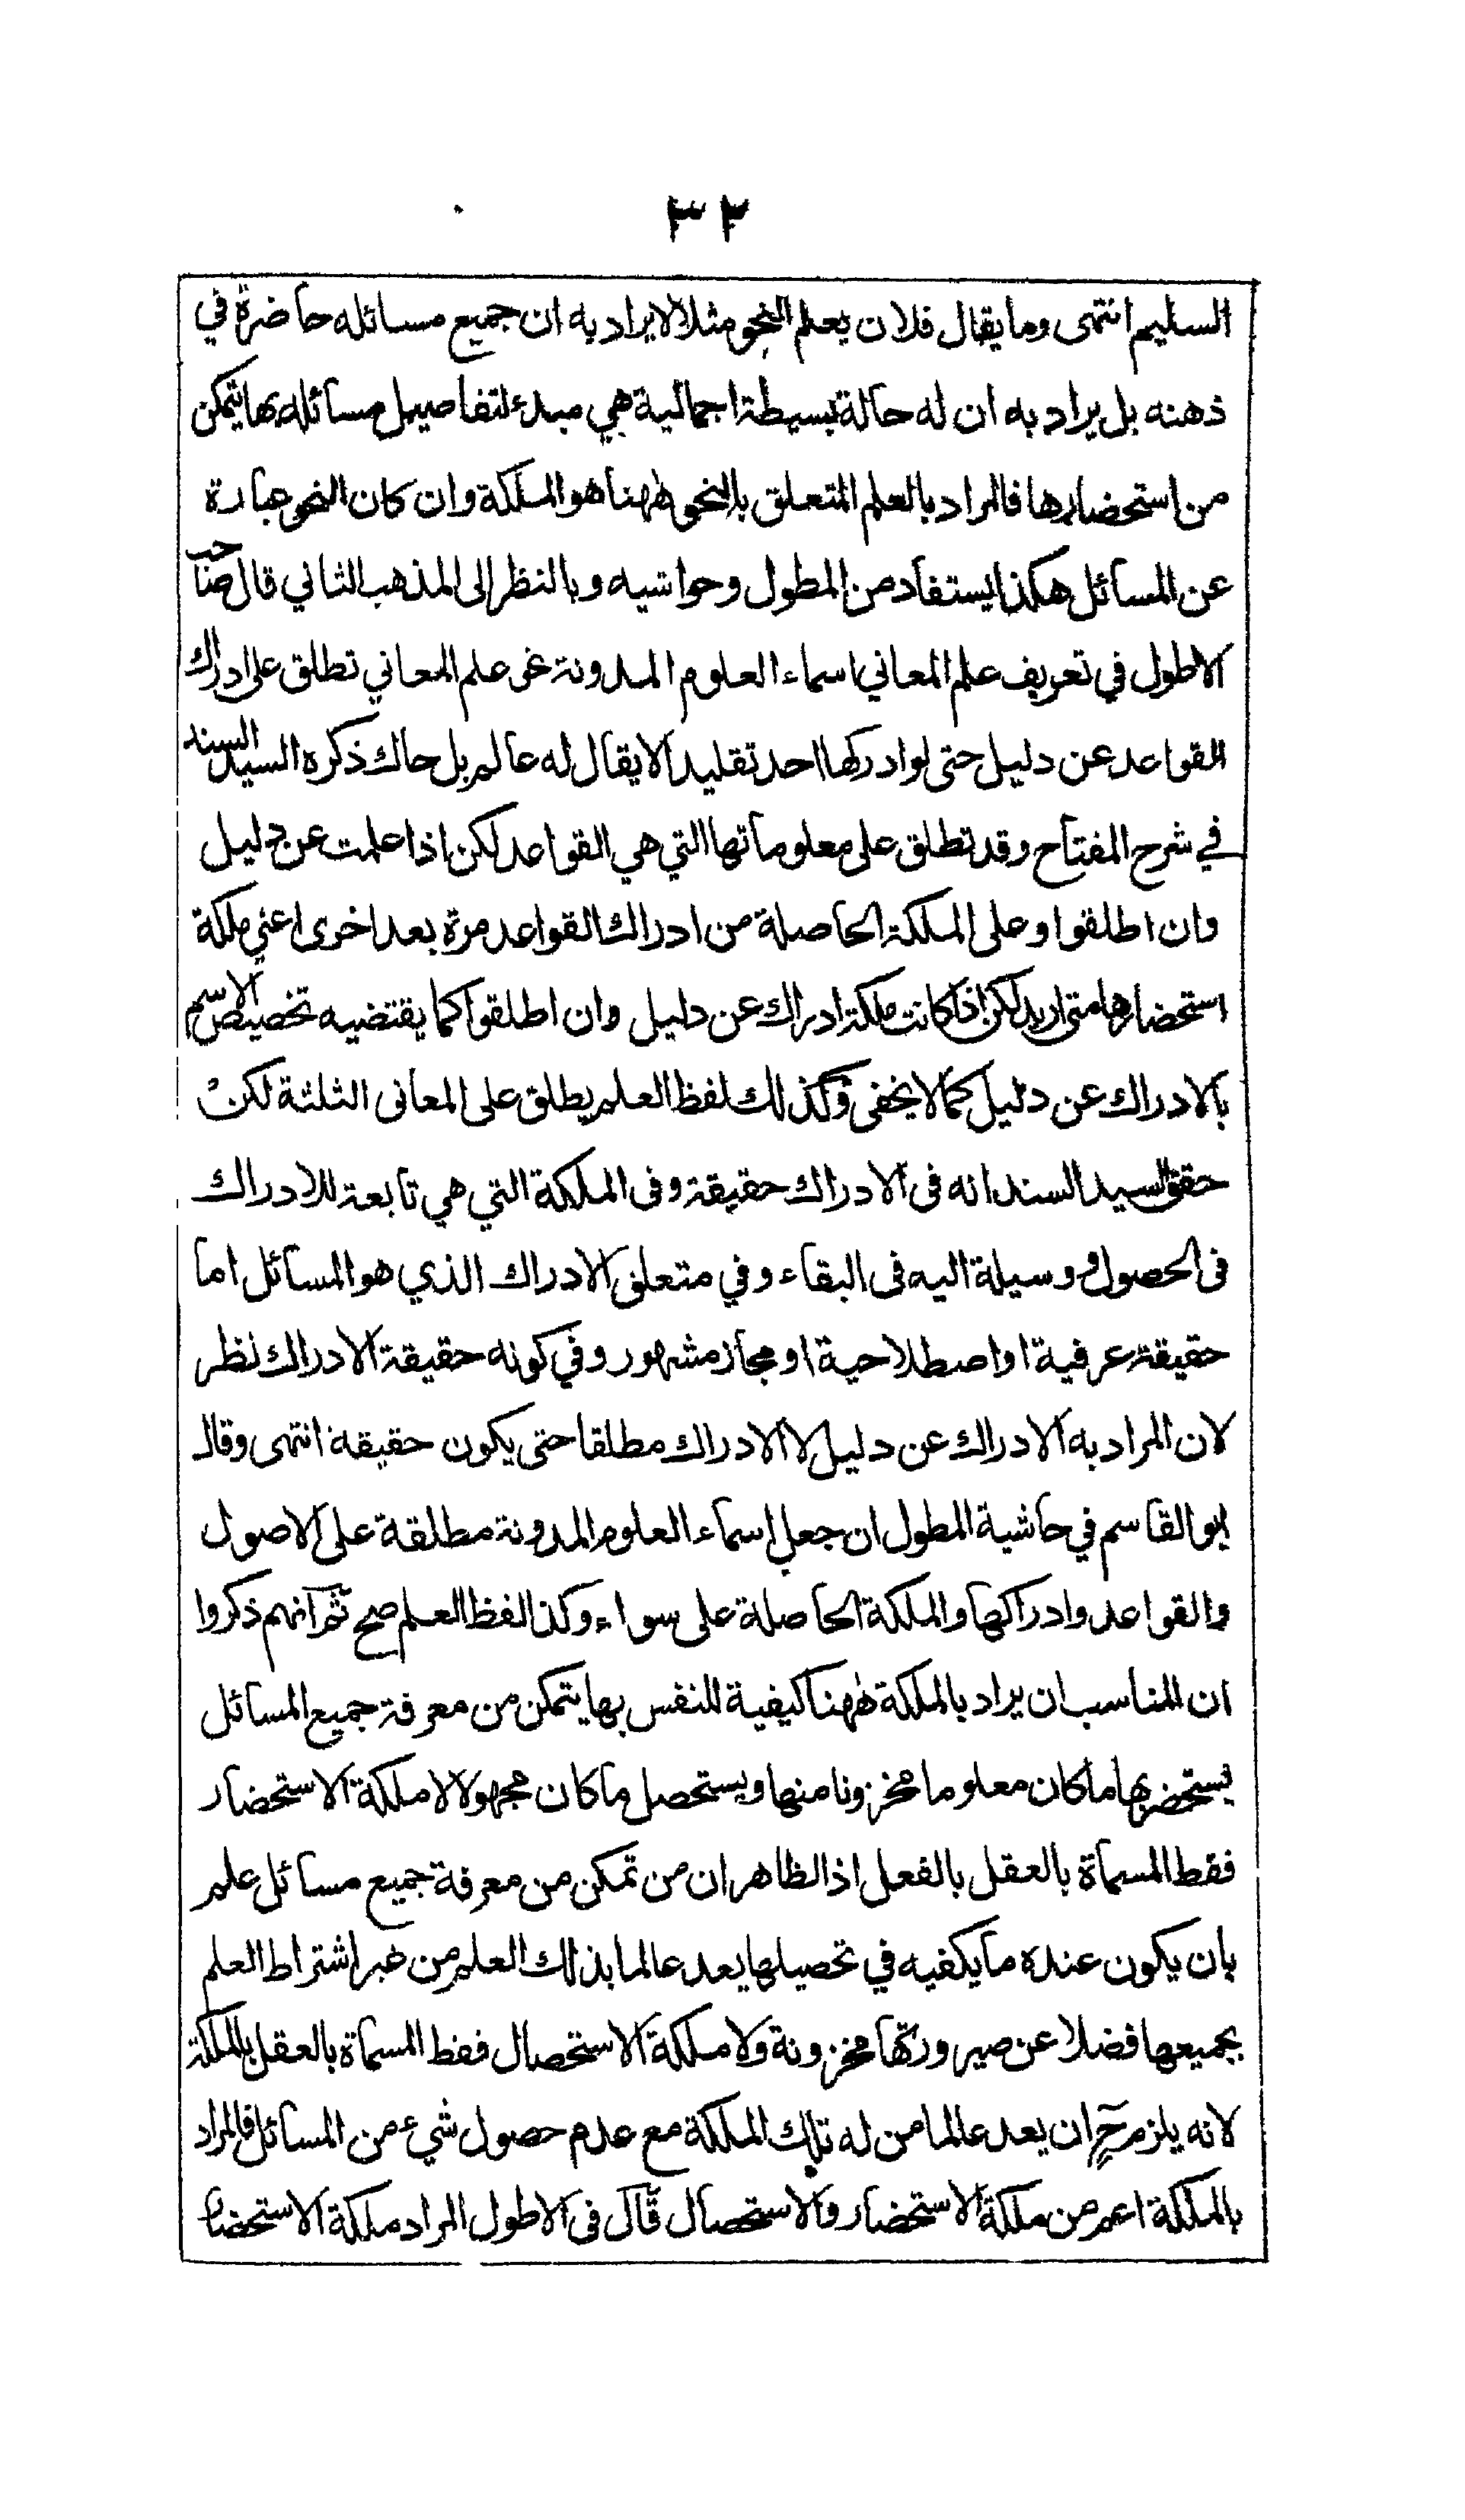 ٣٢
السليم انتهى وما يقال فلان يعلم النحو مثلا لا يراد به ان جميع مسائله حاضرة في
ذهنه بل يراد به ان له حالة بسيطة اجمالية هي مبدء لتفاصيل مسائله بها يتمكن
من استحضارها فالمراد بالعلم المتعلق بالنحو ههنا هو الملكة وان كان النحو عبارة
عن المسائل هكذا يستفاد من المطول وحواشيه وبالنظر الى المذهب الثاني قال صاحب
الاطول في تعريف علم المعاني اسماء العلوم المدونة نحو علم المعاني تطلق على ادراك
القواعد عن دليل حتى لو ادركها احد تقليدا لا يقال له عالم بل حاك ذكره السيد السند
في شرح المفتاح وقد تطلق على معلوماتها التي هي القواعد لكن اذا علمت عن دليل
وان اطلقوا وعلى الملكة الحاصلة من ادراك القواعد مرة بعد اخرى اعني ملكة
استحضارها متى اريد لكن اذا كانت ملكة ادراك عن دليل وان اطلقوا كما يقتضيه تخصيص الاسم
بالادراك عن دليل كما لا يخفى وكذلك لفظ العلم يطلق على المعانى الثلثة لكن
حقق السيد السند انه فى الادراك حقيقة وفى الملكة التي هي تابعة للادراك
فى الحصول ووسيلة اليه فى البقاء وفي متعلق الادراك الذي هو المسائل اما
حقيقة عرفية او اصطلاحية او مجاز مشهور وفي كونه حقيقة الادراك نظر
لان المراد به الادراك عن دليل لا الادراك مطلقا حتى يكون حقيقة انتهى وقال
ابو القاسم في حاشية المطول ان جعل اسماء العلوم المدونة مطلقة على الاصول
والقواعد وادراكها والملكة الحاصلة على سواء وكذا لفظ العلم صح ثم انهم ذكروا
ان المناسب ان يراد بالملكة ههنا كيفية للنفس بها يتمكن من معرفة جميع المسائل
يستحضر بها ما كان معلوما مخزونا منها ويستحصل ما كان مجهولا لا ملكة الاستحضار
فقط المسماة بالعقل بالفعل اذ الظاهر ان من تمكن من معرفة جميع مسائل علم
بان يكون عنده ما يكفيه في تحصيلها يعد عالما بذلك العلم من غير اشتراط العلم
بجميعها فضلا عن صيرورتها مخزونة ولا ملكة الاستحصال فقط المسماة بالعقل بالملكة
لانه يلزم ح ان يعد عالما من له تلك الملكة مع عدم حصول شيء من المسائل فالمراد
بالملكة اعم من ملكة الاستحضار والاستحصال قال فى الاطول المراد ملكة الاستحضار